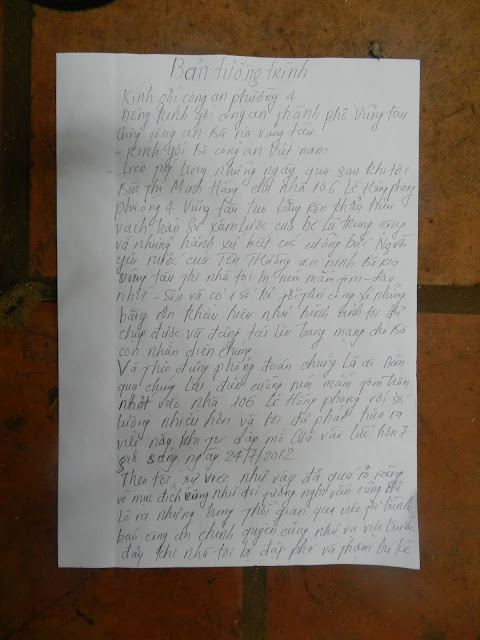 Bản tường trình
Kính gởi công an phường 4
Đồng kính gởi công an thành phố Vũng tàu
Cùng công an Bà rịa vũng tàu
- Kính gởi Bộ công an Việt nam
Trên trong những ngày qua sau khi tôi
Bùi thị Minh Hằng chủ nhà 106 Lê Hồng phong
phường 4 Vũng tàu treo băng rôn khẩu hiệu
vạch trần sự xâm lược của bè lũ trung cộng
và những hành vi bắt cóc cưỡng bức Người
yêu nước của Tên tướng an ninh Bà rịa
vũng tàu thì nhà tôi bị ném mắm tôm - dầu
nhớt - Sơn và có 1 số kẻ tấn công xé những
băng rôn khẩu hiệu như hình ảnh tôi đã
chụp được và đăng tải lên trang mạng cho Bà
con nhận diện chúng
Và Thời đúng phỏng đoán chúng là ai Đêm
qua chúng lại điên cuồng ném mắm tôm trộn
nhớt vào nhà 106 Lê Hồng phong với số
lượng nhiều hơn và tôi đã phát hiện ra
việc này khi tôi dậy mở cửa vào lúc hơn 7
giờ sáng ngày 24/7/2012
Theo tôi, sự việc như vậy đã quá rõ ràng
về mục đích cũng như đối tượng nghi vấn cũng đã
lộ ra những trong thời gian qua việc tôi trình
báo công an chính quyền cũng như vụ việc trước
đây khi nhà tôi bị đập phá và